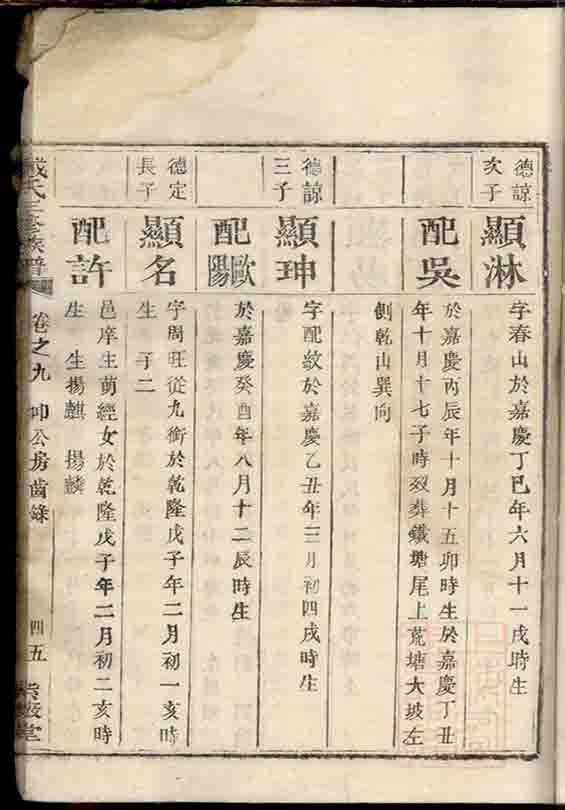 德諒次子
顯淋
字春山於嘉慶丁巳年六月十一戌時生
配吳
於嘉慶丙辰年十月十五卯時生於嘉慶丁丑
年十月十七子時歿葬鐵塘尾上荒塘大坡左
側乾山巽向
德諒三子
顯珅
字配紋於嘉慶乙丑年三月初四戌時生
配歐陽
於嘉慶癸酉年八月十二辰時生
德定長子
顯名
字周旺從九銜於乾隆戊子年二月初一亥時
生 子二
配許
邑庠生萬經女於乾隆戊子年二月初二亥時
生 生揚麒 揚麟
氏三修族譜
卷之九 卬公房齒錄
四五
堂